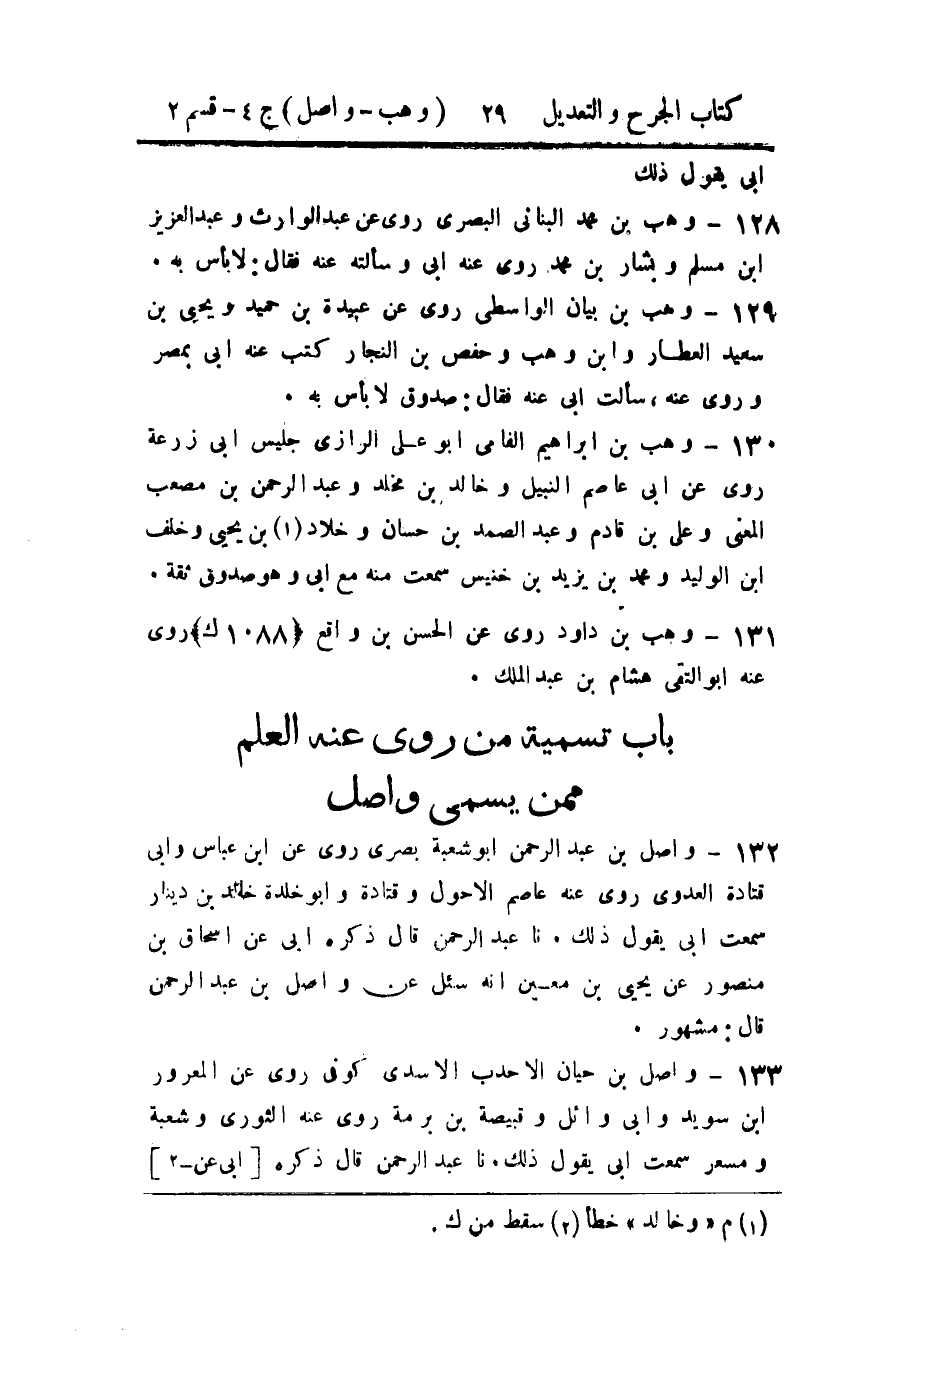 كتاب الجرح والتعديل ٢٩ (وهب-واصل) ج ٤-قسم ٢
ابى يقول ذلك
١٢٨ - وهب بن محمد البنانى البصرى روى عن عبدالوارث وعبدالعزيز
ابن مسلم وبشار بن محمد روى عنه ابى وسألته عنه فقال: لابأس به .
١٢٩ - وهب بن بيان الواسطى روى عن عبيدة بن حميد ويحيى بن
سعيد العطار وابن وهب وحفص بن النجار كتب عنه ابى بمصر
وروى عنه، سألت ابى عنه فقال: صدوق لابأس به .
١٣٠ - وهب بن ابراهيم الفامى ابو على الرازى جليس ابى زرعة
روى عن ابى عاصم النبيل وخالد بن مخلد وعبد الرحمن بن مصعب
المعنى وعلى بن قادم وعبد الصمد بن حسان وخلاد (١) بن يحيى وخلف
ابن الوليد ومحمد بن يزيد بن خنيس سمعت منه مع ابى وهو صدوق ثقة .
١٣١ - وهب بن داود روى عن الحسن بن واقع {١٠٨٨ ك} روى
عنه ابو التقى هشام بن عبد الملك .
باب تسمية من روى عنه العلم
ممن يسمى واصل
١٣٢ - واصل بن عبد الرحمن ابو شعبة بصرى روى عن ابن عباس وابى
قتادة العدوى روى عنه عاصم الاحول وقتادة وابو خلدة خالد بن دينار
سمعت ابى يقول ذلك . نا عبد الرحمن قال ذكره ابى عن اسحاق بن
منصور عن يحيى بن معين انه سئل عن واصل بن عبد الرحمن
قال: مشهور .
١٣٣ - واصل بن حيان الاحدب الاسدى كوفى روى عن المعرور
ابن سويد وابى وائل وقبيصة بن برمة روى عنه الثورى وشعبة
ومسعر سمعت ابى يقول ذلك. نا عبد الرحمن قال ذكره [ابى عن-٢]
(١) م «وخالد» خطأ (٢) سقط من ك .